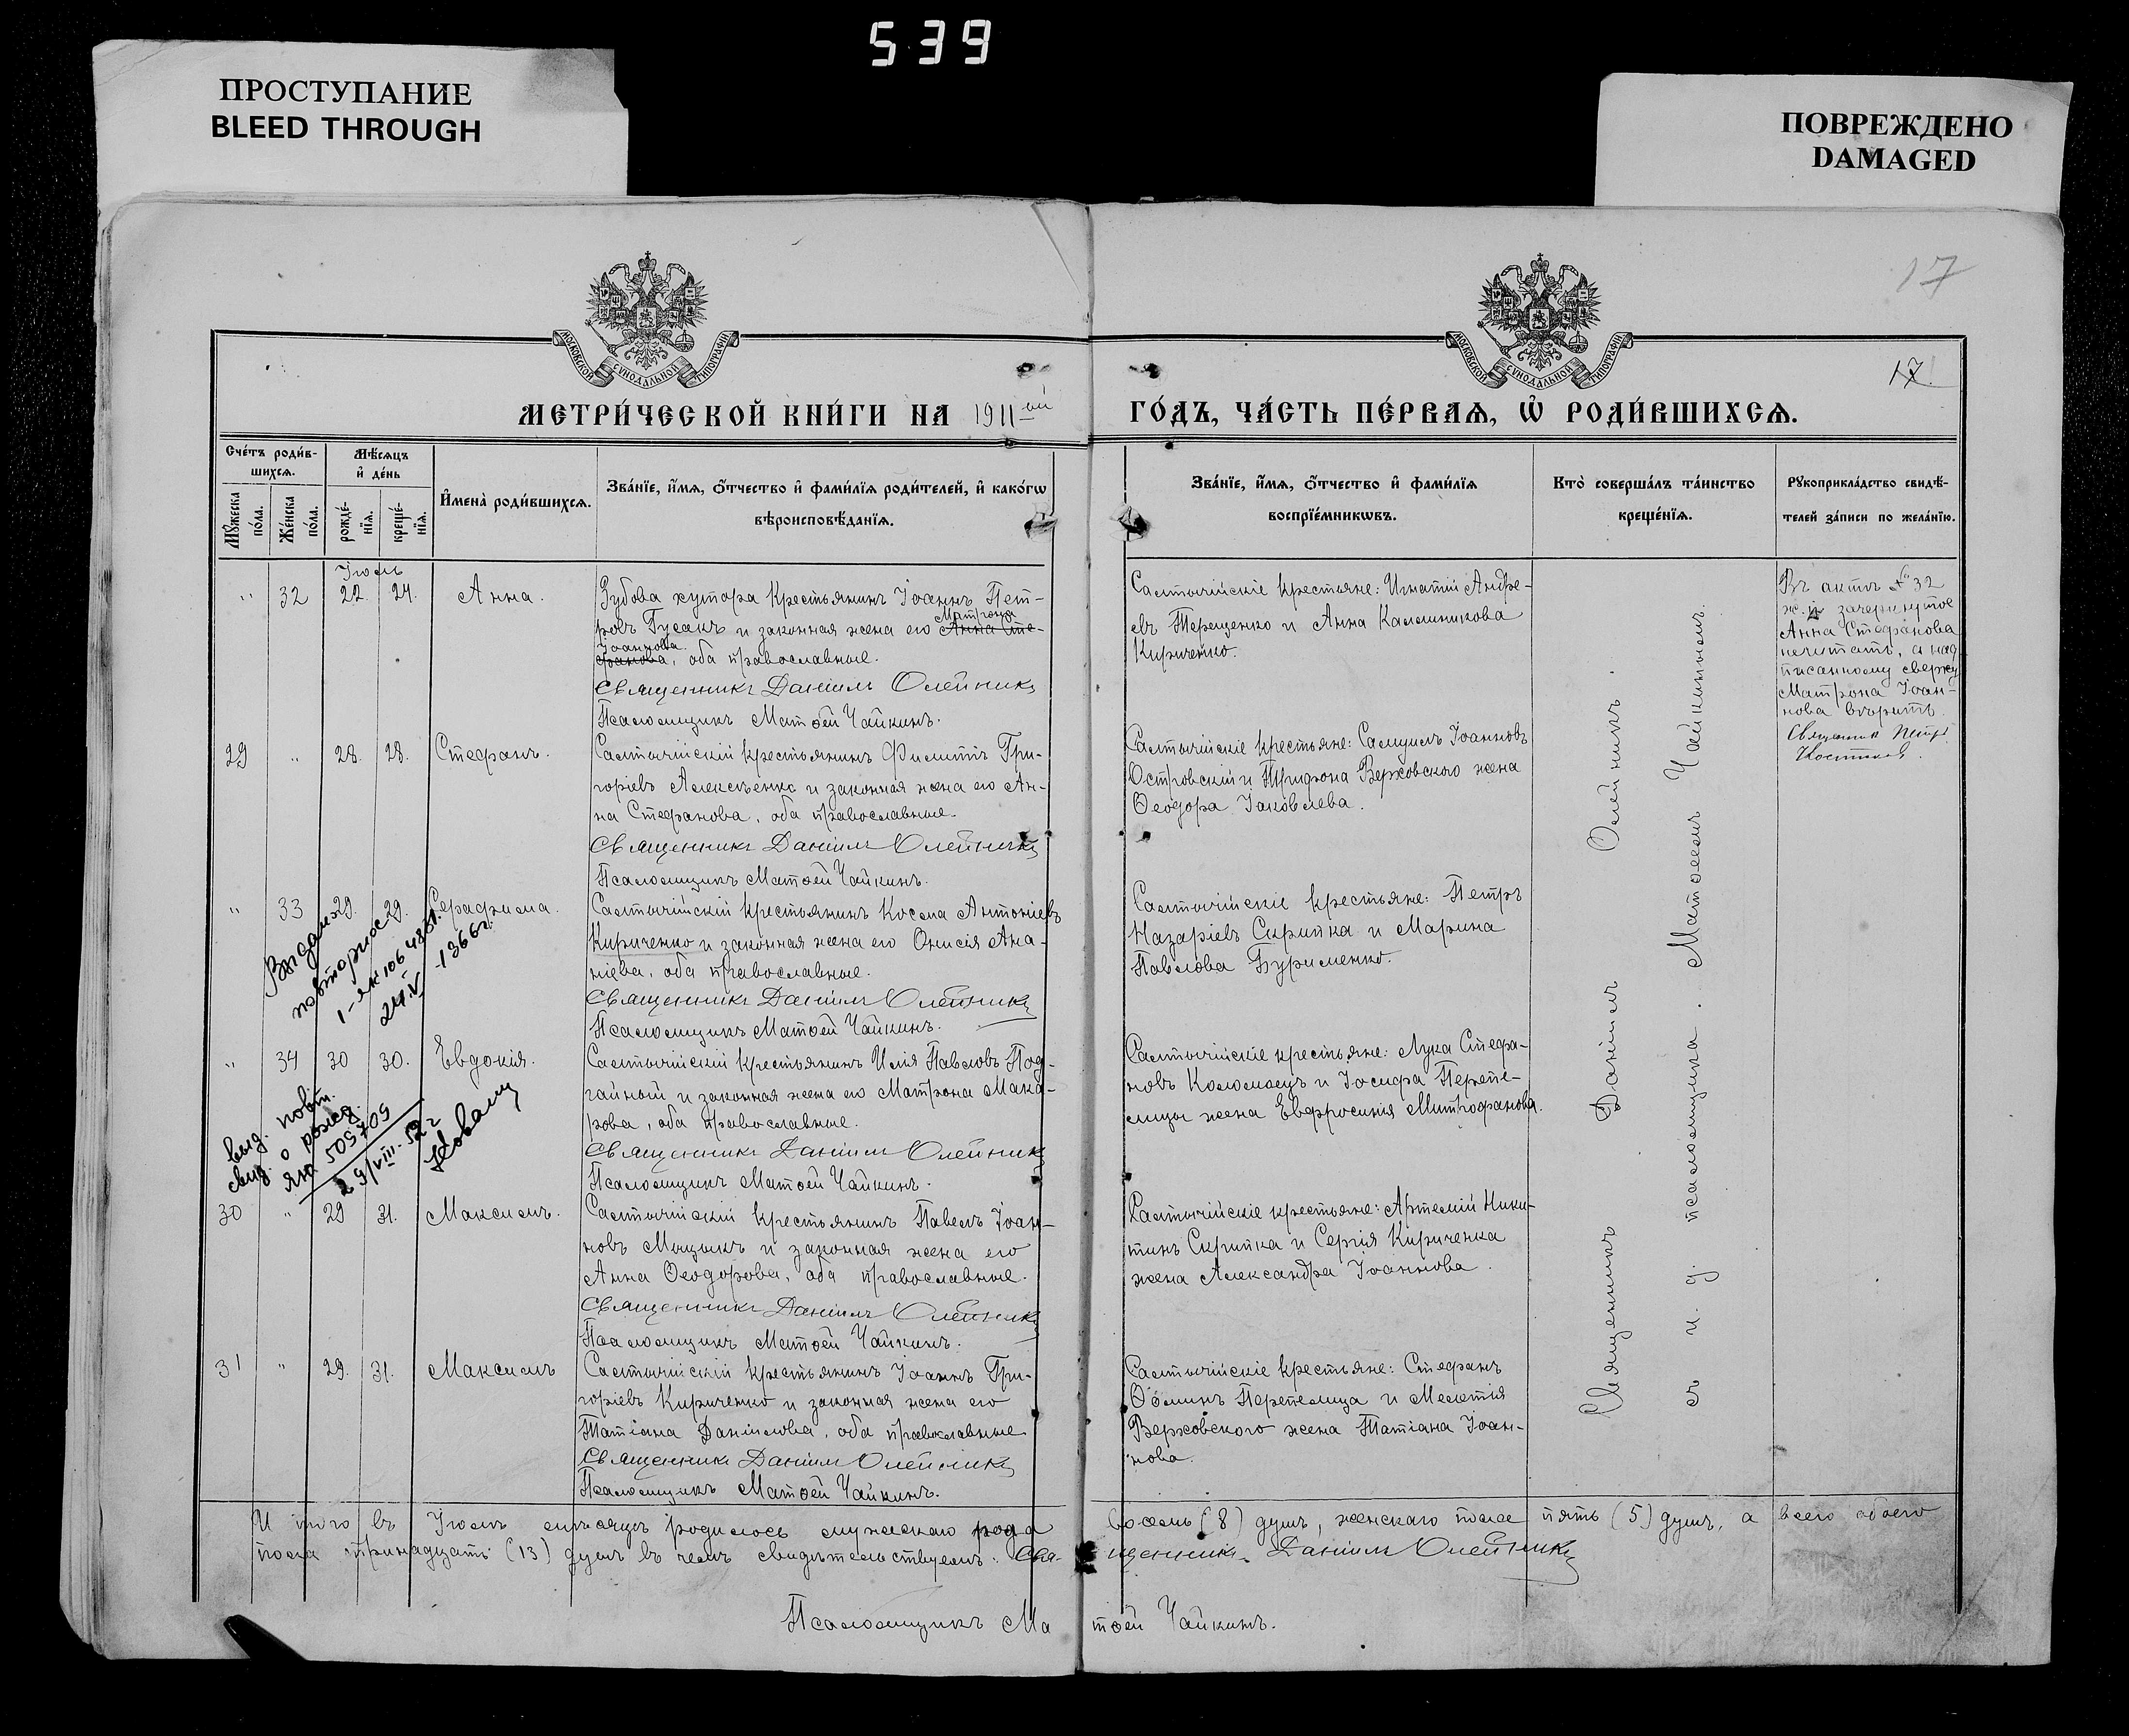 539
ПРОСТУПАНИЕ
BLEED THROUGH
ПОВРЕЖДЕНО
DAMAGED
17
МОСКОВСКОЙ СѴНОДАЛЬНОЙ ТИПОГРАФІИ
МОСКОВСКОЙ СѴНОДАЛЬНОЙ ТИПОГРАФІИ
17.
МЕТРИ́ЧЕСКОЙ КНИ́ГИ НА 1911ый
ГО́ДЪ, ЧА́СТЬ ПЕ́РВАѦ, Ѡ҆ РОДИ́ВШИХСѦ.
Сче́тъ роди́в-
шихсѧ.
Мѣ́сѧцъ
и҆ де́нь
Мꙋ́жеска
по́ла.
Же́нска
по́ла.
рожде́-
нїѧ.
креще́-
нїѧ.
И҆мена̀ роди́вшихсѧ.
Зва́нїе, и҆́мѧ, ѻ҆́тчество и҆ фами́лїѧ роди́телей, и҆ како́гѡ
вѣроисповѣ́данїѧ.
Зва́нїе, и҆́мѧ, ѻ҆́тчество и҆ фами́лїѧ
воспрїе́мникѡвъ.
Кто̀ соверша́лъ та́инство
креще́нїѧ.
Рꙋкоприкла́дство свидѣ́-
телей за́писи по жела́нїю.
Іюль
" 32 22. 24. Анна.
Зубова хутора крестьянинъ Іоаннъ Пет-
ровъ Гусакъ и законная жена его Анна Сте-
Матрона
Іоаннова
фанова, оба православные.
Священникъ Даніилъ Олейникъ
Псаломщикъ Матѳей Чайкинъ.
Салтычійскіе крестьяне: Игнатій Андре-
евъ Терещенко и Анна Калинникова
Кириченко.
Въ актѣ № 32
ж. п зачеркнутое
Анна Стефанова
нечитать, а над
писанному сверху
Матрона Іоан-
нова вѣрить.
Священник Петр
29 " 28. 28. Стефанъ.
Салтычійскій крестьянинъ Филиппъ Гри-
горіевъ Алексѣенко и законная жена его Ан-
на Стефанова, оба православные.
Священникъ Даніилъ Олейникъ
Псаломщикъ Матѳей Чайкинъ.
Салтычійскіе крестьяне: Самуилъ Іоанновъ
Островскій и Трифона Верховского жена
Ѳеодора Іаковлева.
" 33 29. 29. Серафима.
Выдано
повторное
1-ЯК 106 4861.
24.V -1966г.
Салтычійскій крестьянинъ Косма Антоніевъ
Кириченко и законная жена его Онисія Ана-
ніева, оба православные.
Священникъ Даніилъ Олейникъ
Псаломщикъ Матѳей Чайкинъ.
Салтычійскіе крестьяне: Петръ
Назаріевъ Скрипка и Марина
Павлова Бурименко.
" 34 30 30. Евдокія.
выд. повт.
свид. о рожд.
ЯЮ 505709
29/VIII-52г
Салтычійскій крестьянинъ Илія Павловъ Под-
гайный и законная жена его Матрона Мака-
рова, оба православные.
Священникъ Даніилъ Олейникъ
Псаломщикъ Матѳей Чайкинъ.
Салтычійскіе крестьяне: Лука Стефа-
новъ Коломоецъ и Іосифа Перепе-
лицы жена Евфросинія Митрофанова.
30 " 29 31. Максимъ.
Салтычійскій крестьянинъ Павелъ Іоан-
новъ Мицыкъ и законная жена его
Анна Ѳеодорова, оба православные.
Священникъ Даніилъ Олейникъ
Псаломщикъ Матѳей Чайкинъ.
Салтычійскіе крестьяне: Артемій Ники-
тинъ Скрипка и Сергія Кириченка
жена Александра Іоаннова.
31 " 29. 31. Максимъ
Салтычійскій крестьянинъ Іоаннъ Гри-
горіевъ Кириченко и законная жена его
Татіана Даніилова, оба православные
Священникъ Даніилъ Олейникъ
Псаломщикъ Матѳей Чайкинъ.
Салтычійскіе крестьяне: Стефанъ
Ѳоминъ Перепелица и Мелетія
Верховского жена Татіана Іоан-
нова.
Священникъ Даніилъ Олейникъ.
съ и. д. псаломщика. Матѳеемъ Чайкинымъ.
И того въ Іюлѣ мѣсяцѣ родилось мужскаго рода восемь (8) душъ, женскаго пола пять (5) душъ, а всего обоего
пола тринадцать (13) душъ въ чемъ свидѣтельствуемъ: Свя-щенникъ Даніилъ Олейникъ
Псаломщикъ Матѳей Чайкинъ.